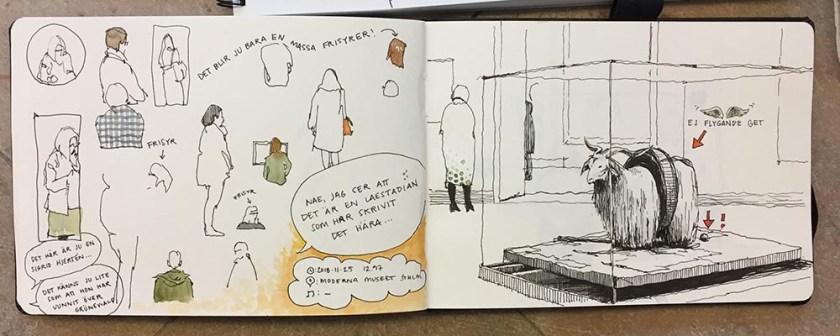 DET BLIR JU BARA EN MASSA FRISYRER!
FRISYR
FRISYR
NAE, JAG SER ATT
DET ÄR EN LAESTADIAN
SOM HAR SKRIVIT
DET HÄRA...
DET HÄR ÄR JU EN
SIGRID HJERTÉN...
DET KÄNNS JU LITE
SOM ATT HON HAR
VUNNIT ÖVER
GRÜNEWALD
: 2018-11-25 12.57
: MODERNA MUSEET, STHLM
: —
EJ FLYGANDE GET
!